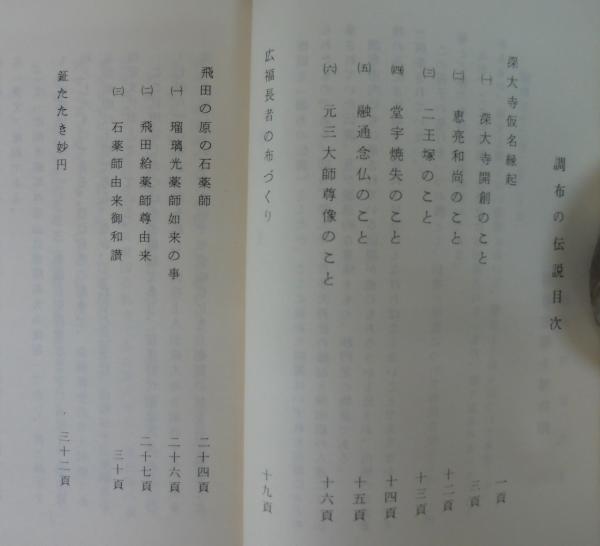 調布の伝説目次
深大寺仮名縁起 一頁
㈠ 深大寺開創のこと 三頁
㈡ 恵亮和尚のこと 十二頁
㈢ 二王塚のこと 十三頁
㈣ 堂宇焼失のこと 十四頁
㈤ 融通念仏のこと 十五頁
㈥ 元三大師尊像のこと 十六頁
広福長者の布づくり 十九頁
飛田の原の石薬師 二十四頁
㈠ 瑠璃光薬師如来の事 二十六頁
㈡ 飛田給薬師尊由来 二十七頁
㈢ 石薬師由来御和讃 三十頁
鉦たたき妙円 三十二頁